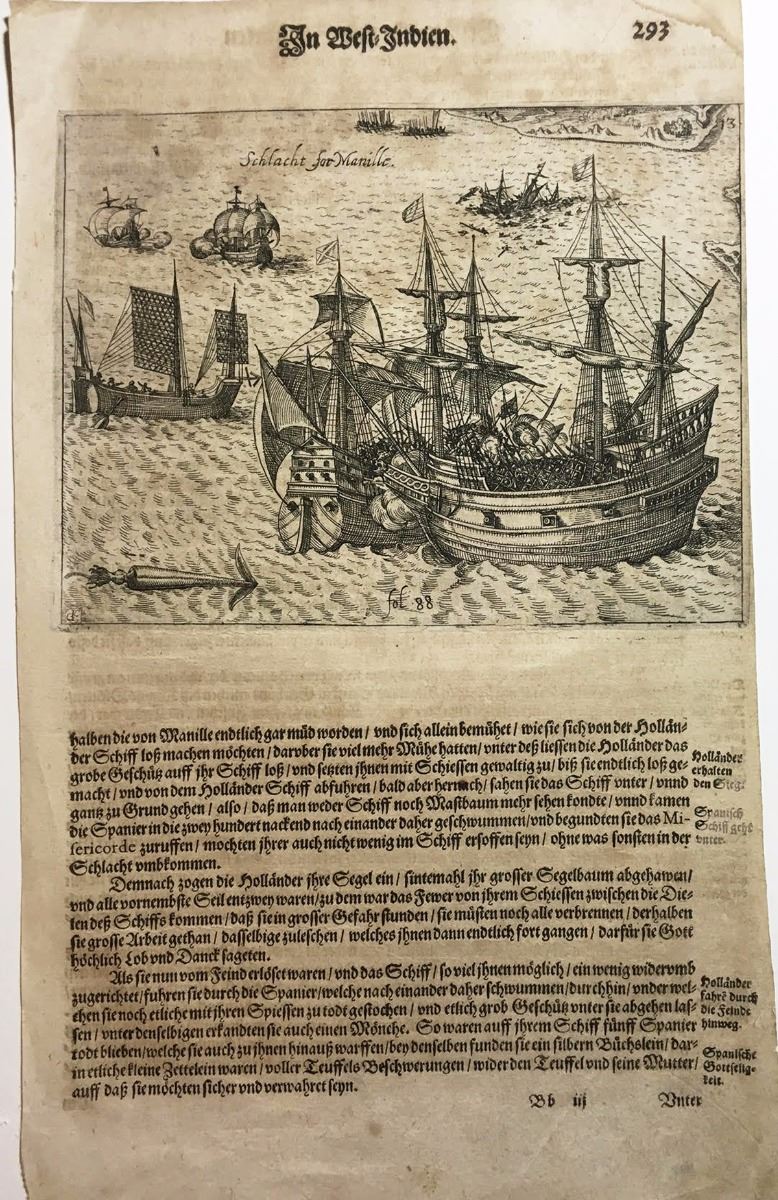 In West-Indien.
293
13
Schlacht for Manille.
fol 88
halben die von Manille endtlich gar müd worden / vnd sich allein bemühet / wie sie sich von der Hollän-
der Schiff loß machen möchten / darvber sie viel mehr Mühe hatten / vnter deß liessen die Holländer das
grobe Geschütz auff jhr Schiff loß / vnd setzten jhnen mit Schiessen gewaltig zu / biß sie endtlich loß ge-
macht / vnd von dem Holländer Schiff abfuhren / bald aber hernach / sahen sie das Schiff vnter / vnnd
gantz zu Grund gehen / also / daß man weder Schiff noch Mastbaum mehr sehen kondte / vnnd kamen
die Spanier in die zwey hundert nackend nach einander daher geschwummen / vnd begundten sie das Mi-
sericorde zuruffen / mochten jhrer auch nicht wenig im Schiff ersoffen seyn / ohne was sonsten in der
Schlacht vmbkommen.
Holländer
erhalten
den Sieg.
Spanisch
Schiff geht
vnter.
Demnach zogen die Holländer jhre Segel ein / sintemahl jhr grosser Segelbaum abgehawen /
vnd alle vornembste Seil entzwey waren / zu dem war das Fewer von jhrem Schiessen zwischen die Die-
len deß Schiffs kommen / daß sie in grosser Gefahr stunden / sie müsten noch alle verbrennen / derhalben
sie grosse Arbeit gethan / dasselbige zuleschen / welches jhnen dann endtlich fort gangen / darfür sie Gott
höchlich Lob vnd Danck sageten.
Als sie nun vom Feind erlöset waren / vnd das Schiff / so viel jhnen möglich / ein wenig widervmb
zugerichtet / fuhren sie durch die Spanier / welche nach einander daher schwummen / durchhin / vnder wel-
chen sie noch etliche mit jhren Spiessen zu todt gestochen / vnd etlich grob Geschütz vnter sie abgehen las-
sen / vnter denselbigen erkandten sie auch einen Mönche. So waren auff jhrem Schiff fünff Spanier
todt blieben / welche sie auch zu jhnen hinauß warffen / bey denselben funden sie ein silbern Büchslein / dar-
in etliche kleine Zettelein waren / voller Teuffels Beschwerungen / wider den Teuffel vnd seine Mutter /
auff daß sie möchten sicher vnd verwahret seyn.
Holländer
fahrē durch
die Feinde
hinweg.
Spanische
Gottselig-
keit.
Bb iij
Vnter